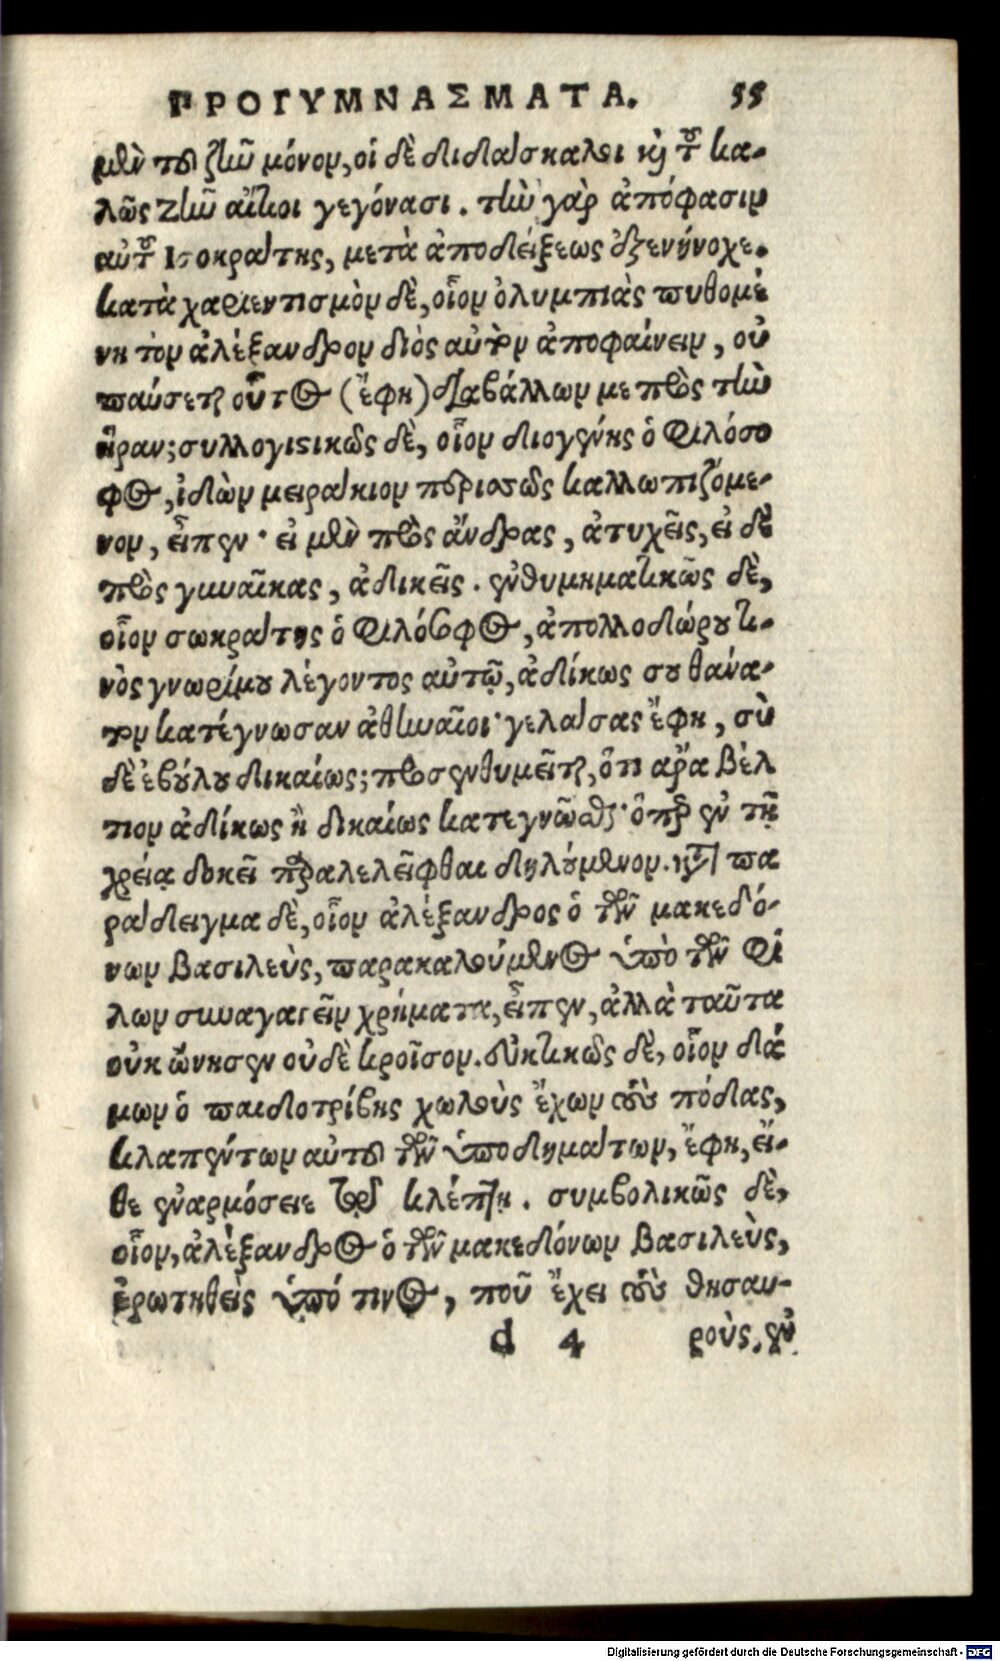 ΠΡΟΓΥΜΝΑΣΜΑΤΑ. 55
μὲν τοῦ ζῆν μόνον, οἱ δὲ διδάσκαλοι καὶ τοῦ κα-
λῶς ζῆν αἴτιοι γεγόνασι. τὴν γὰρ ἀπόφασιν
αὐτοῦ Ισοκράτης, μετὰ ἀποδείξεως ἐξενήνοχε.
κατὰ χαριεντισμὸν δὲ, οἷον ὀλυμπιὰς πυθομέ
νη τὸν ἀλέξανδρον διὸς αὐτὸν ἀποφαίνειν, οὐ
παύσεται οὗτος (ἔφη) διαβάλλων με πρὸς τὴν
ἥραν; συλλογιστικῶς δὲ, οἷον διογένης ὁ φιλόσο
φος, ἰδὼν μειράκιον περισσῶς καλλωπιζόμε-
νον, εἶπεν· εἰ μὲν πρὸς ἄνδρας, ἀτυχεῖς, εἰ δὲ
πρὸς γυναῖκας, ἀδικεῖς. ἐνθυμηματικῶς δὲ,
οἷον σωκράτης ὁ φιλόσοφος, ἀπολλοδώρου τι-
νὸς γνωρίμου λέγοντος αὐτῷ, ἀδίκως σου θάνα-
τον κατέγνωσαν ἀθηναῖοι· γελάσας ἔφη, σὺ
δὲ ἐβούλου δικαίως; προσενθυμεῖται, ὅτι ἄρα βέλ
τιον ἀδίκως ἢ δικαίως κατεγνῶσθαι· ὅπερ ἐν τῇ
χρείᾳ δοκεῖ παραλελεῖφθαι δηλούμενον. κατὰ πα
ράδειγμα δὲ, οἷον ἀλέξανδρος ὁ τῶν μακεδό-
νων βασιλεὺς, παρακαλούμενος ὑπὸ τῶν φί
λων συναγαγεῖν χρήματα, εἶπεν, ἀλλὰ ταῦτα
οὐκ ὤνησεν οὐδὲ κροῖσον. εὐκτικῶς δὲ, οἷον δά
μων ὁ παιδοτρίβης χωλοὺς ἔχων τοὺς πόδας,
κλαπέντων αὐτοῦ τῶν ὑποδημάτων, ἔφη, εἴ-
θε ἐναρμόσειε τῷ κλέπτῃ. συμβολικῶς δὲ,
οἷον, ἀλέξανδρος ὁ τῶν μακεδόνων βασιλεὺς,
ἐρωτηθεὶς ὑπό τινος, ποῦ ἔχει τοὺς θησαυ-
d 4 ροὺς, ἐν
Digitalisierung gefördert durch die Deutsche Forschungsgemeinschaft - DFG